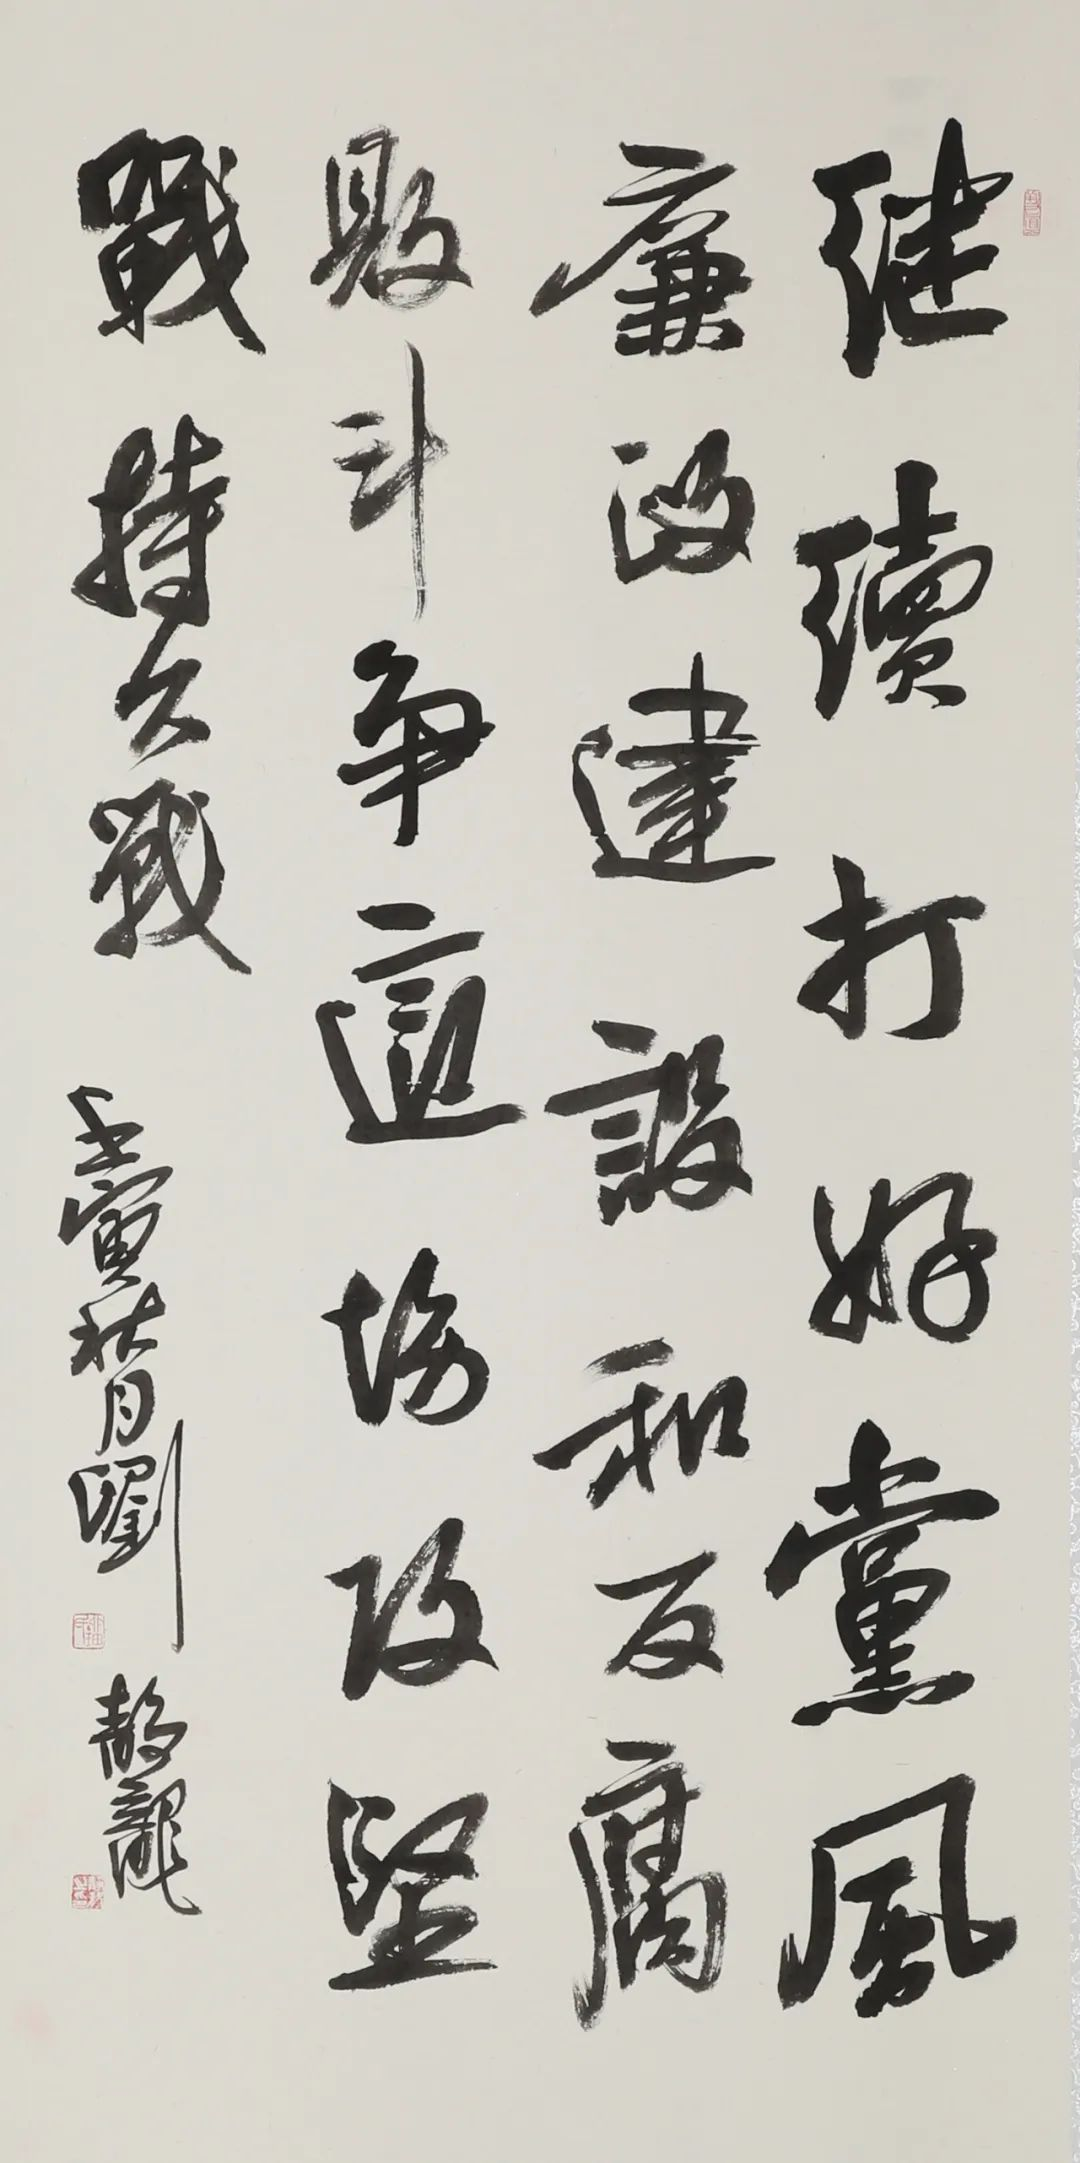 继續打好黨風
廉政建設和反腐
敗斗争這場攻堅
戰持久戰
壬寅秋月劉
龍